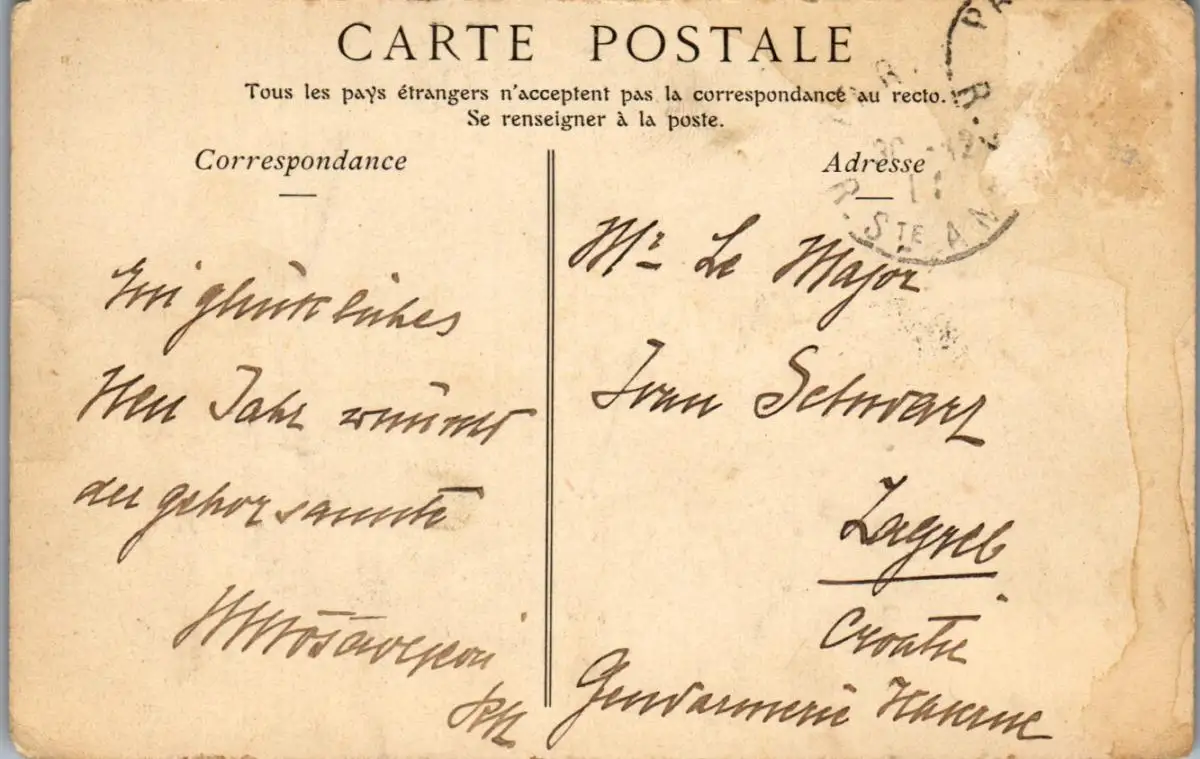 CARTE POSTALE
Tous les pays étrangers n'acceptent pas la correspondance au recto.
Se renseigner à la poste.
Correspondance
Adresse
R. STE AN
Ein glückliches
Neu Jahr wünscht
der gehorsamste
Mr Le Major
Ivan Schwarz
Zagreb
Croatie
Gendarmerie Kaserne